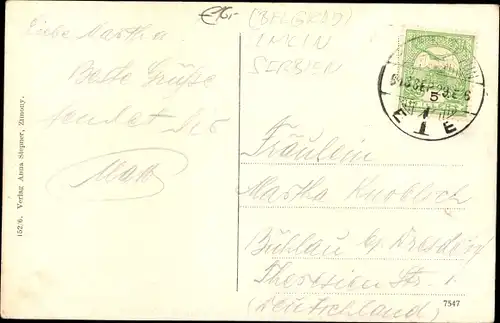 €16,-
(BELGRAD)
IN KIN
SERBIEN
Liebe Martha
Beste Grüße
sendet Dir
Max
152/6. Verlag Anna Stepner, Zimony.
5
E E
Fräulein
Martha Knobloch
Bühlau b/ Dresden
Theresien Str. 1
(Deutschland)
7547